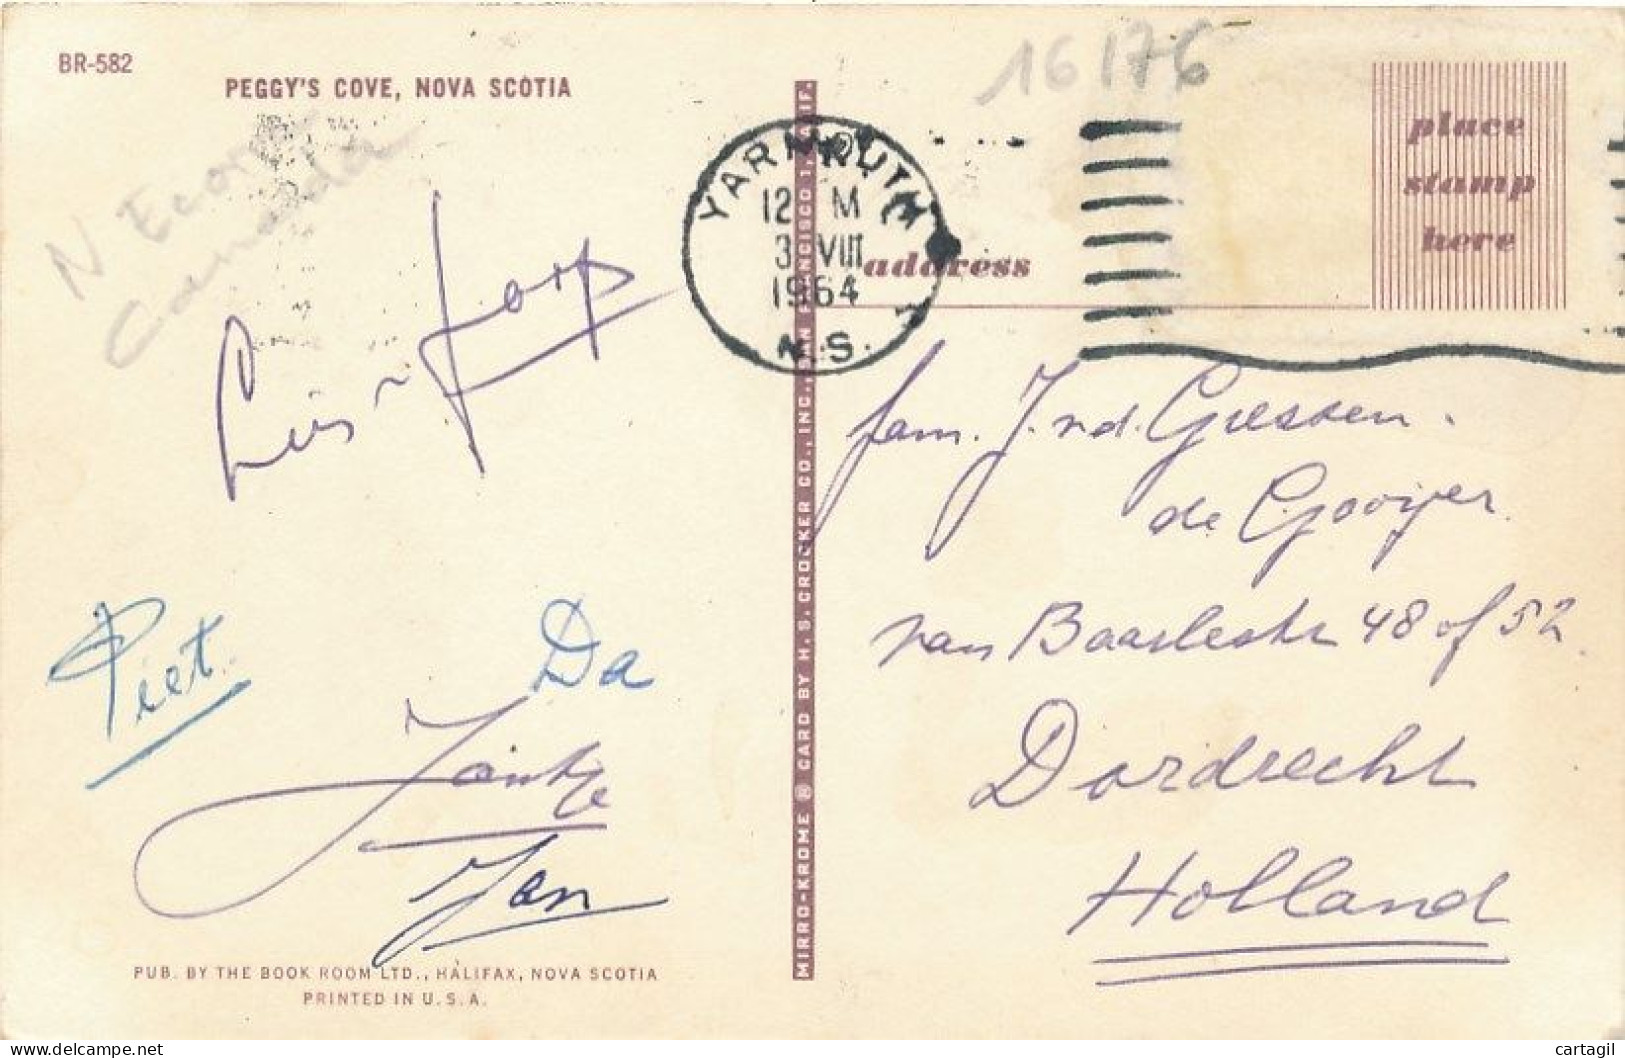 BR-582
PEGGY'S COVE, NOVA SCOTIA
16176
N Ecosse
Canada
YARMOUTH
12 M
3 VIII
1964
N.S.
place
stamp
here
address
fam. J. v.d. Giessen.
de Gooijer
van Baerlestr 48 of 52
Dordrecht
Holland
Piet.
Da
Jantje
Jan
MIRRO-KROME ® CARD BY H. S. CROCKER CO., INC., SAN FRANCISCO 1, CALIF.
PUB. BY THE BOOK ROOM LTD., HALIFAX, NOVA SCOTIA
PRINTED IN U.S.A.
cartagil